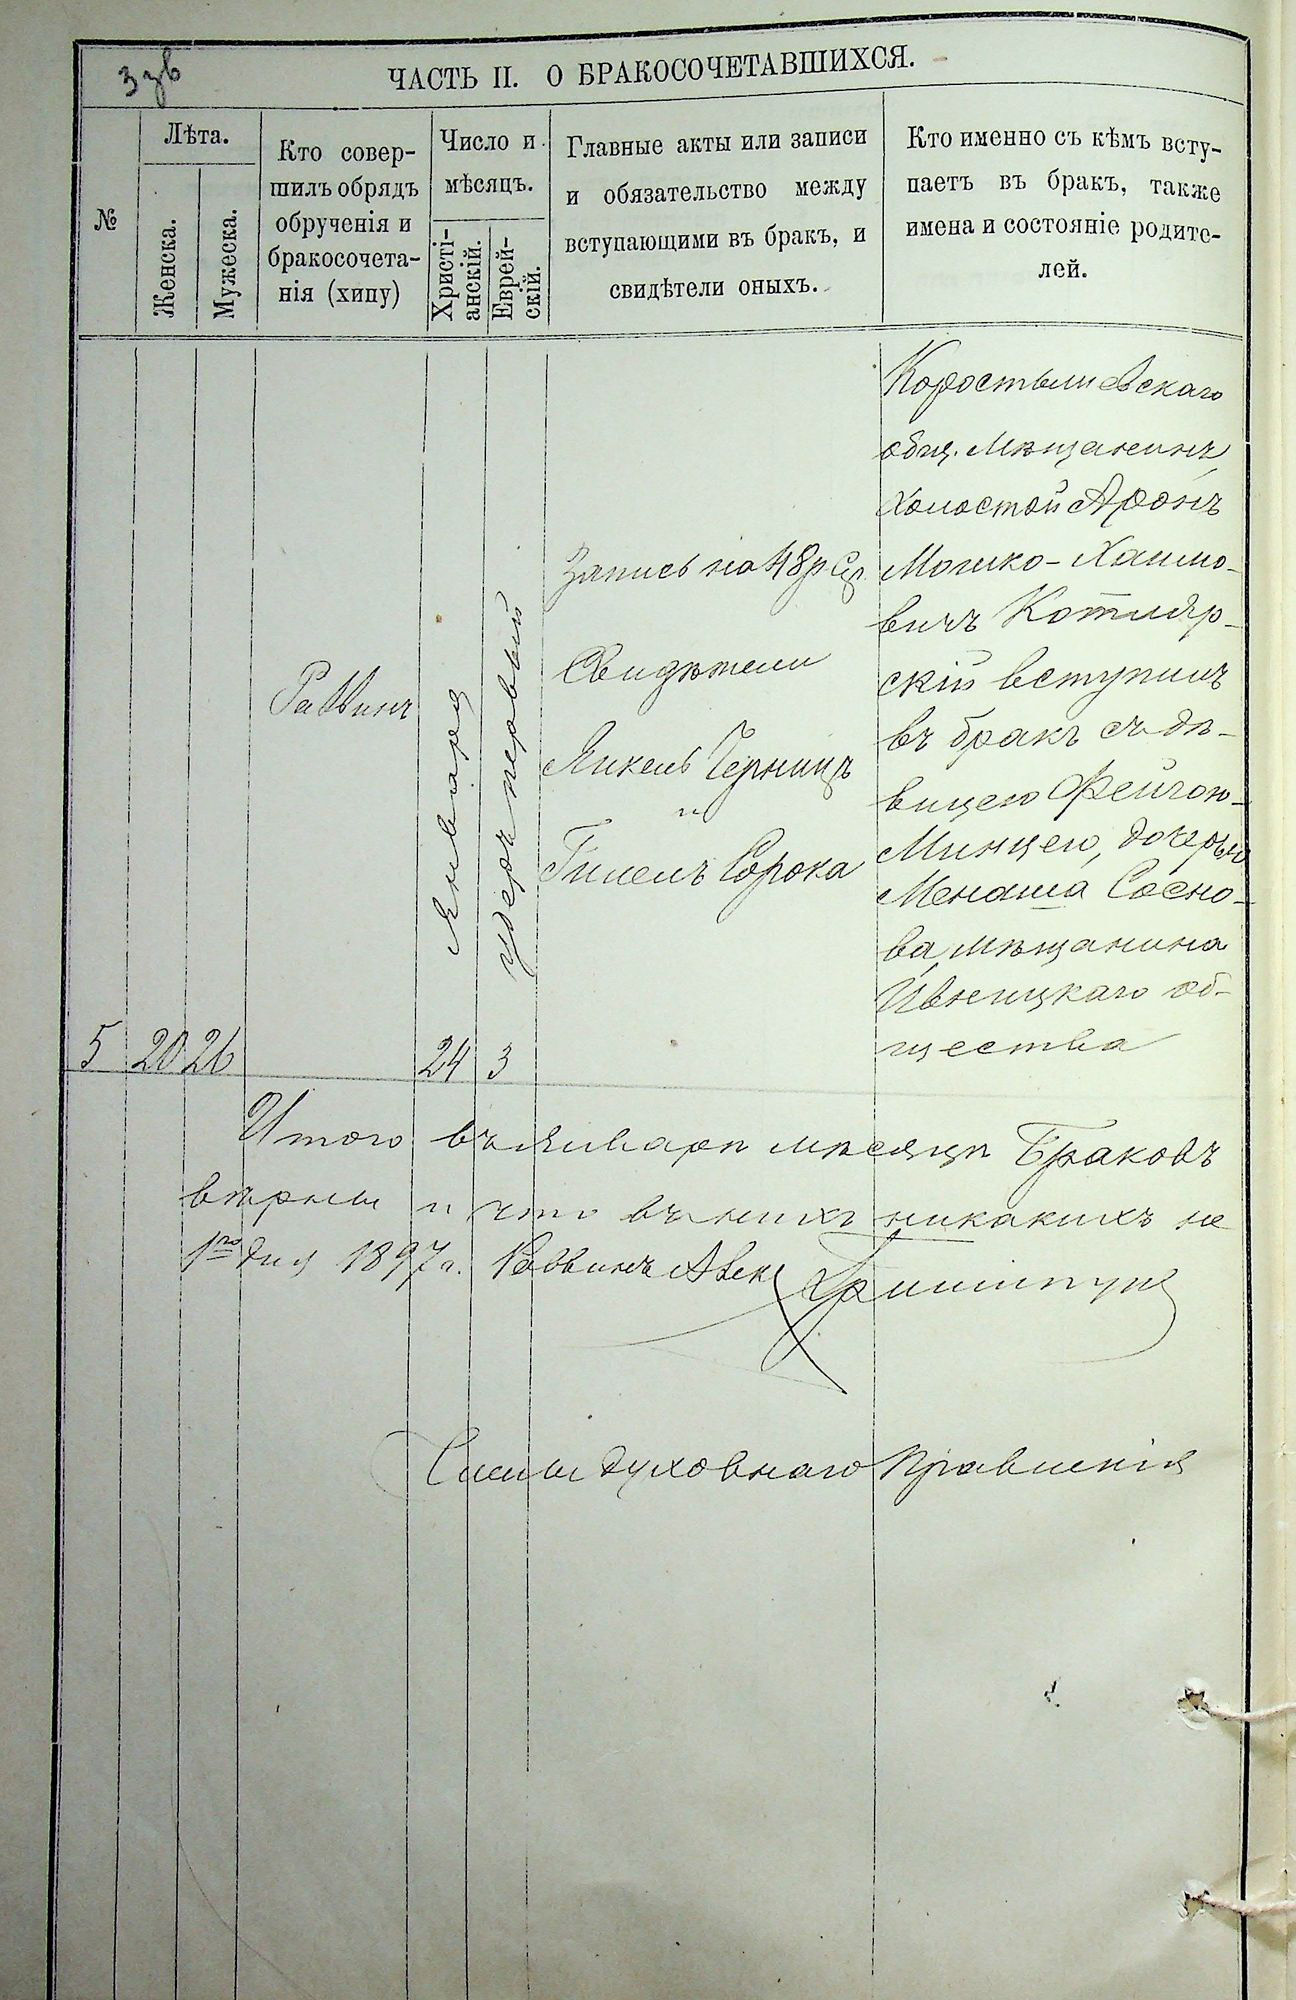 3 зв
ЧАСТЬ II. О БРАКОСОЧЕТАВШИХСЯ.
№
Лѣта.
Женска.
Мужеска.
Кто совер-
шилъ обрядъ
обрученія и
бракосочета-
нія (хипу)
Число и
мѣсяцъ.
Христі-
анскій.
Еврей-
скій.
Главные акты или записи
и обязательство между
вступающими въ бракъ, и
свидѣтели оныхъ.
Кто именно съ кѣмъ всту-
паетъ въ бракъ, также
имена и состояніе родите-
лей.
5
20
26
Раввинъ
Января
24
удеръ первый
3
Запись на 48 р. Ср.
Свидѣтели
Янкель Черницъ
и
Гилелъ Сорока
Коростышевскаго
общ. мѣщанинъ
холостой Аронъ
Мошко-Хаимо-
вичъ Котляр-
скій вступилъ
въ бракъ съ дѣ-
вицею Фейгою-
Минцею, дочерью
Менаша Сосно-
ва, мѣщанина
Ивницкаго об-
щества
Итого въ Январѣ мѣсяцѣ Браковъ
вѣрны и что въ нихъ никакихъ не
1го дня 1897 г. Раввинъ
Члены духовнаго Правленія